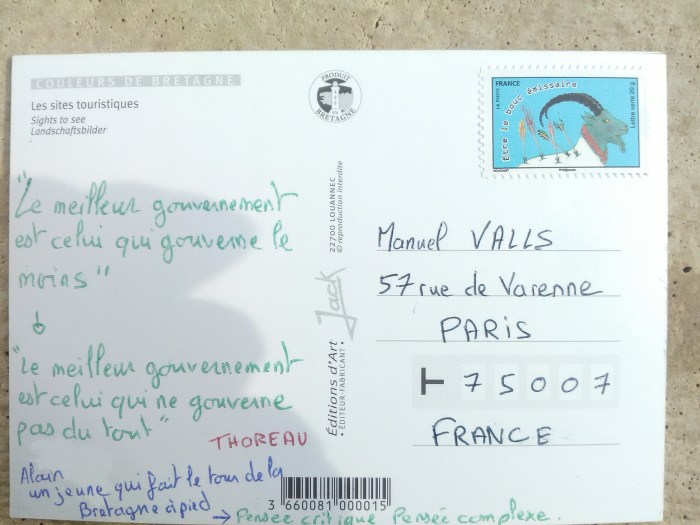 COULEURS DE BRETAGNE
Les sites touristiques
Sights to see
Landschaftsbilder
PRODUIT
EN
BRETAGNE
FRANCE
La Poste
Être le bouc émissaire
Lettre verte 20 g
Phil@poste
"Le meilleur gouvernement
est celui qui gouverne le
moins"
"Le meilleur gouvernement
est celui qui ne gouverne
pas du tout"
THOREAU
Alain
un jeune qui fait le tour de la
Bretagne à pied
→ Pensée critique Pensée complexe.
Éditions d'Art
• ÉDITEUR-FABRICANT •
Jack
22700 LOUANNEC
© reproduction interdite
3 660081 000015
Manuel VALLS
57 rue de Varenne
PARIS
75007
FRANCE